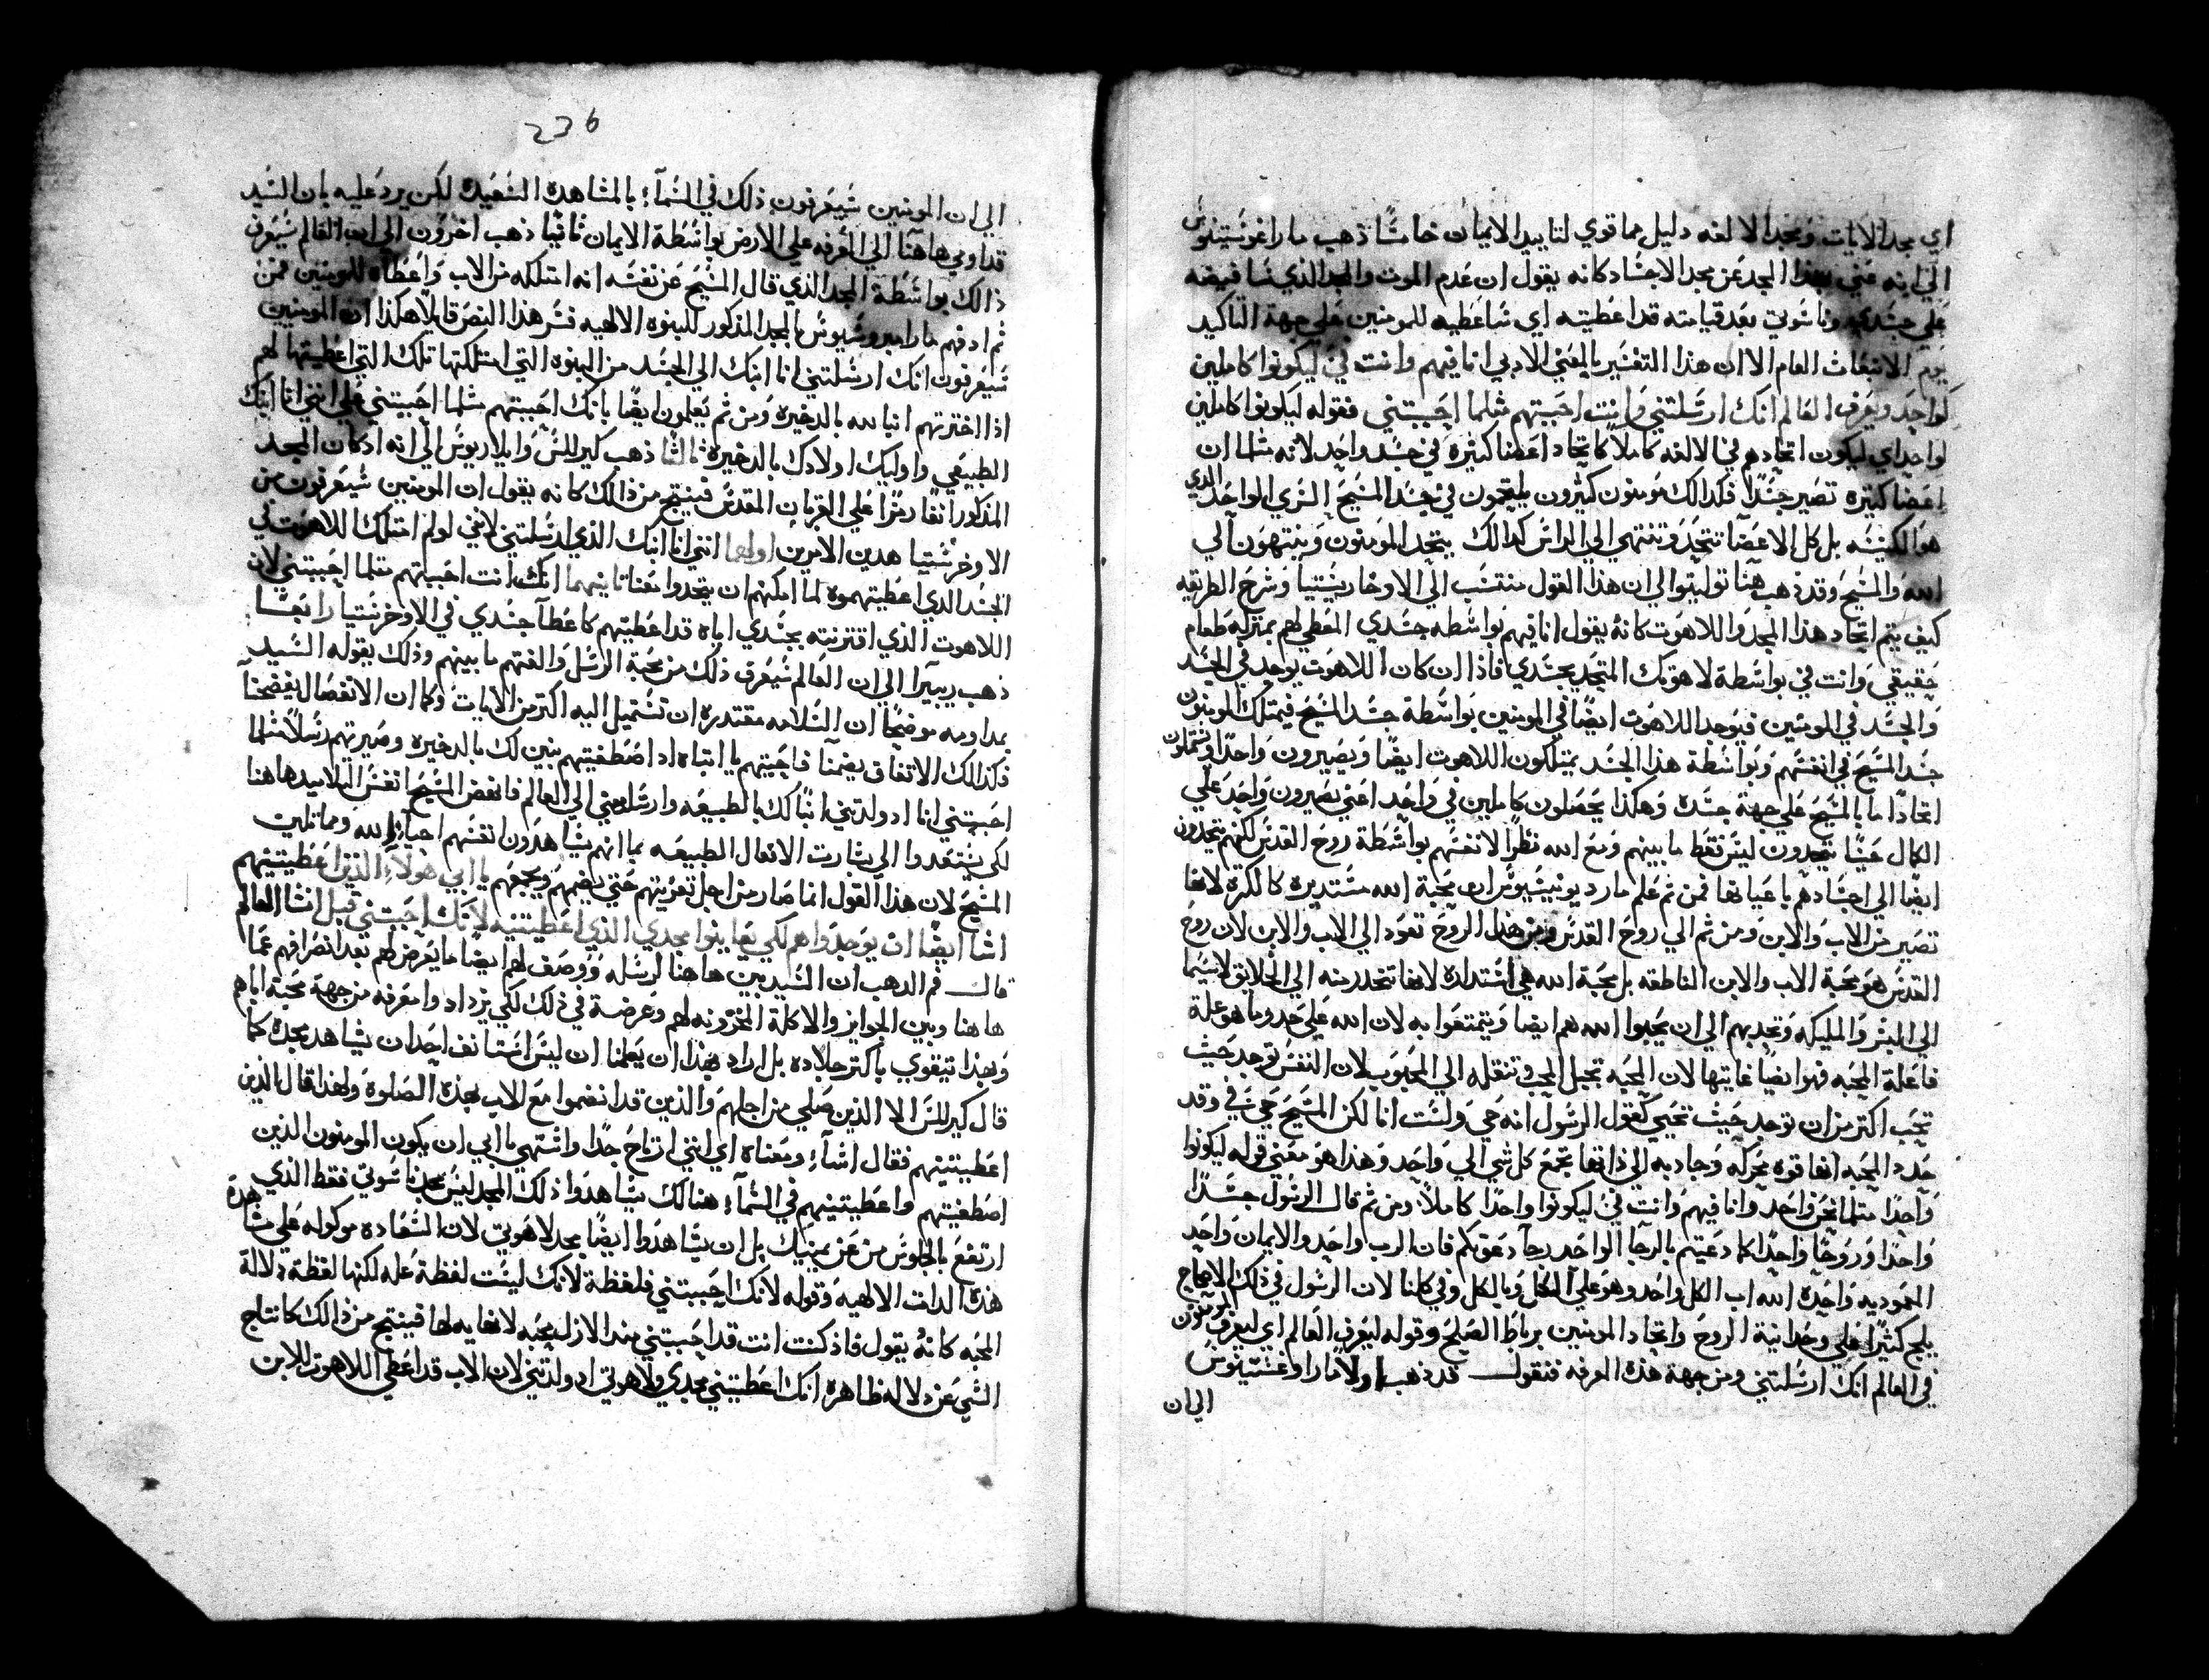 اي مجد الايات ومجد الالفه دليل مما قوي لتاييد الايمان خامسًا ذهب ماراغوسيتنوس
الي انه عني بهذا المجد عن مجد الاجساد كانه يقول ان عدم الموت والمجد الذي سافيضه
علي جسدي وناسوتي بعد قيامته قد اعطيته اي ساعطيه للمومنين علي جهة التاكيد
يوم الانبعاث العام الا ان هذا التفسير بالمعني الادبي انا فيهم وانت فيَّ ليكونوا كاملين
لواحد ويعرف العالم انك ارسلتني وانت احببتهم مثلما احببتني فقوله ليكونوا كاملين
لواحد اي ليكون اتحادهم في الالفه كاملاً كاتحاد اعضا كثيرة في جسد واحد لانه مثلما ان
اعضا كثيره تصير جسدًا فكدالك مومنون كثيرون يلتحمون في جسد المسيح السري الواحد الذي
هو الكنيسه بل كل الاعضا تتحد وتنتهي الي الراس كدالك يتحد المومنون وينتهون الي
الله والمسيح وقد ذهب هنا توليتوا الي ان هذا القول منتسب الي الاوخاريستيا وشرح الطريقه
كيف يتم اتحاد هذا المجد واللاهوت كانهُ يقول انا فيهم بواسطه جسدي المعطي لهم بمنزلة طعام
حقيقي وانت في بواسطة لاهوتك المتحد بجسدي فاذا ان كان اللاهوت يوجد في الجسد
والجسد في المومنين فيوجد اللاهوت ايضًا في المومنين بواسطة جسد المسيح فيمتلك المومنون
جسد المسيح في انفسهم وبواسطة هذا الجسد يمتلكون اللاهوت ايضًا ويصيرون واحدًا ويشتملون
اتحادًا ما بالمسيح علي جهة جسده وهكذا يحصلون كاملين في واحد اعني يصيرون واحد علي
الكمال عينًا يتحدون ليس فقط ما بينهم ومع الله نظرًا لانفسهم بواسطة روح القدس لكنهم يتحدون
ايضًا الي اجسادهم باعيانها فمن ثم علم مارديونيسيوس ان محبة الله مستديره كالكرة لانها
تصير من الاب والابن ومن ثم الي روح القدس ومن هذا الروح تعود الي الاب والابن لان روح
القدس هو محبة الاب والابن الناطقه بل محبة الله هي استداره لانها تنحدر منه الي الخلايق لاسيما
الي البشر والمليكه وتجدبهم الي ان يحبوا الله هم ايضا ويتمتعوا به لان الله علي حد وما هو علة
فاعلة المحبه فهو ايضًا غايتها لان المحبه تحيل المحب وتنقله الي المحبوب لان النفس توجد حيث
تحب اكتر من ان توجد حيث تحيي كقول الرسول انه حي ولست انا لكن المسيح حي فيَّ وقد
حدد المحبه انها قوه محركه وجادبه الي ذاتها تجمع كل شي الي واحد وهذا هو معني قوله ليكونوا
واحدًا مثلما نحن واحد وانا فيهم وانت فيَّ ليكونوا واحدًا كاملاً ومن ثم قال الرسول جسدًا
واحدًا وروحًا واحدًا كما دعيتم بالرجا الواحد رجا دعوتكم فان الرب واحد والايمان واحد
المعموديه واحدة الله اب الكل واحد وهو علي الكل وبالكل وفي كلنا لان الرسول في ذلك الاصحاح
يلج كثيرًا علي وحدانية الروح واتحاد المومنين برباط الصلح وقوله ليعرف العالم اي ليعرف المومنون
في العالم انك ارسلتني ومن جهة هذه المعرفه فنقول قد ذهب اولاً ماراوغستينوس
الي ان
236
الي ان المومنين سيعرفون ذلك في السمآءِ بالمشاهدة السعيده لكن يرد عليه بان السيد
قد اومي هاهنا الي المعرفه علي الارض بواسطة الايمان ثانيًا ذهب اخرون الي ان العالم سيعرف
ذالك بواسطة المجد الذي قال المسيح عن نفسه انه امتلكه من الاب واعطاه للمومنين فمن
ثم اد فهم مارامبروسيوس بالمجد المذكور للبنوه الالهيه فسر هذا النص قايلاً هكذا ان المومنين
سيعرفون انك ارسلتني انا ابنك الي الجسد من البنوه التي امتلكتها تلك التي اعطيتها لهم
اذا اخترتهم ابنا لله بالدخيره ومن ثم يعلمون ايضًا بانك احببتهم مثلما احببتني علي انني انا ابنك
الطبيعي واوليك اولادك بالدخيره ثالثًا ذهب كيرللس وايلاريوس الي انه اد كان المجد
المذكور انفًا رمزًا علي القربان المقدس فينتج من ذالك كانه يقول ان المومنين سيعرفون من
الاوخرستيا هدين الامرين اولهما انني انا ابنك الذي ارسلتني لانني لو لم امتلك اللاهوت في
الجسد الذي اعطيتهموه لما امكنهم ان يتحدوا معنا ثانيهما انك انت احببتهم مثلما احببتني لان
اللاهوت الذي اقترنته بجسدي اياه قد اعطيتهم كاعطآ جسدي في الاوخرستيا رابعًا
ذهب ريبيرا الي ان العالم سيعرف ذلك من محبة الرسل والفتهم ما بينهم وذلك بقوله السيد
بمداومه موضحًا ان السلامه مقتدره ان تستميل اليه اكثر من الايات وكما ان الانفصال يفضحنا
فكذالك الاتفاق يضمنا فاحببتهم يا ابتاه اد اصطفيتهم بنين لك بالدخيره وصيرتهم رسلاً مثلما
احببتني انا اد ولدتني ابنًا لك بالطبيعه وارسلتني الي العالم فانهض المسيح انفس التلاميد هاهنا
لكي يستعدوا الي بشارت الافعال الطبيعه بما انهم يشاهدون انفسهم احباءِ الله ومماثلين
المسيح لان هذا القول انما صار من اجل تعزيتهم حتي يضمهم ويجمعهم يا ابي هولاءِ الذين اعطيتنيهم
اشا ايضًا ان يوجدوا هم لكي يعاينوا مجدي الذي اعطيتنيه لانك احببتني قبل انشا العالم
قال فم الدهب ان السيد بين هاهنا لرسله ووصف لهم ايضًا ما يعرض لهم بعد انصرافهم عما
هاهنا وبين الجوايز والاكلة المخزونه لهم وعرضة في ذلك لكي يزدادوا معرفه من جهة محبته اياهم
وبهذا تتيقوي باكتر جلاده بل اراد بهذا ان يعلمنا ان ليس استانف احدًا ان يشاهد مجده كما
قال كيرللس الا الذين صلي من اجلهم والذين قد انضموا مع الاب بهذه الصلوه ولهذا قال الذين
اعطيتنيهم فقال اشآءِ ومعناه اي انني ارتاح جدًا واشتهي يا ابي ان يكون المومنون الذين
اصطفيتهم واعطيتنيهم في السمآءِ هنالك يشاهدوا ذلك المجد ليس مجد ناسوتي فقط الذي
ارتفع بالجلوس من عن يمينك بل ان يشاهدوا ايضًا مجد لاهوتي لان السعاده موكوله علي مشاهدة
هذه الدات الالهيه وقوله لانك احببتني فلفظة لانك ليست لفظة عله لكنها لفظة دلالة
المحبه كانهُ يقول فاذ كنت انت قد احببتني مند الازل بمحبه لانهايه لها فينتج من ذالك كانتاج
الشي عن دلاله ظاهره انك اعطيتني مجدي ولاهوتي اد ولدتني لان الاب قد اعطي اللاهوت للابن